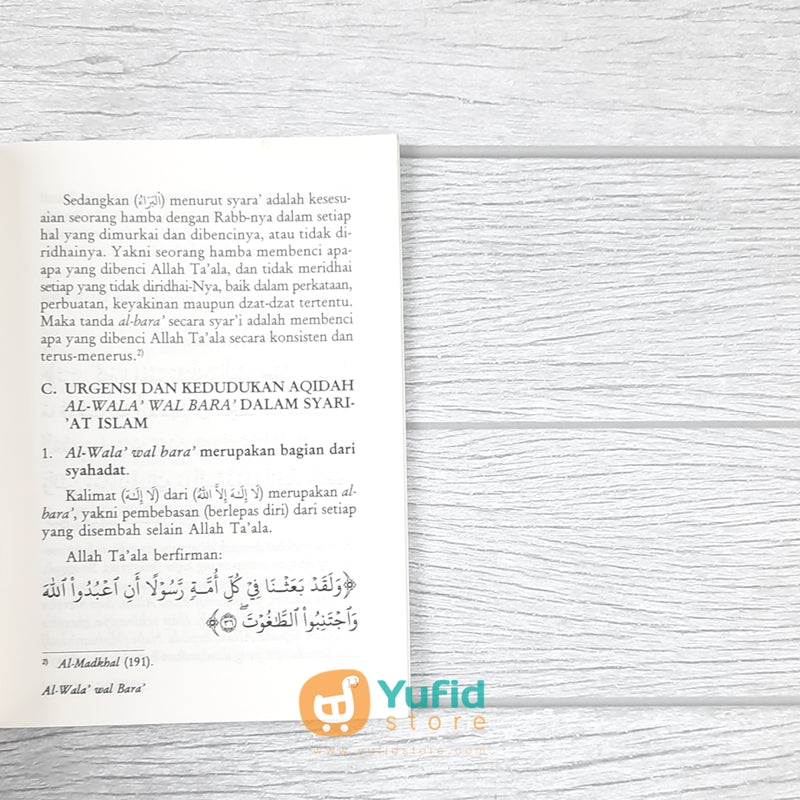 Sedangkan (الْبَرَاءُ) menurut syara' adalah kesesu-
aian seorang hamba dengan Rabb-nya dalam setiap
hal yang dimurkai dan dibencinya, atau tidak di-
ridhainya. Yakni seorang hamba membenci apa-
apa yang dibenci Allah Ta'ala, dan tidak meridhai
setiap yang tidak diridhai-Nya, baik dalam perkataan,
perbuatan, keyakinan maupun dzat-dzat tertentu.
Maka tanda al-bara' secara syar'i adalah membenci
apa yang dibenci Allah Ta'ala secara konsisten dan
terus-menerus.²⁾
C. URGENSI DAN KEDUDUKAN AQIDAH
AL-WALA' WAL BARA' DALAM SYARI-
'AT ISLAM
1. Al-Wala' wal bara' merupakan bagian dari
syahadat.
Kalimat (لَا إِلَـٰهَ) dari (لَا إِلَـٰهَ إِلَّا اللهُ) merupakan al-
bara', yakni pembebasan (berlepas diri) dari setiap
yang disembah selain Allah Ta'ala.
Allah Ta'ala berfirman:
﴿وَلَقَدْ بَعَثْنَا فِي كُلِّ أُمَّةٍ رَّسُولًا أَنِ ٱعْبُدُوا۟ ٱللَّهَ
وَٱجْتَنِبُوا۟ ٱلطَّٰغُوتَ ۖ ٣٦﴾
²⁾ Al-Madkhal (191).
Al-Wala' wal Bara'
Yufid
store
www.yufidstore.com